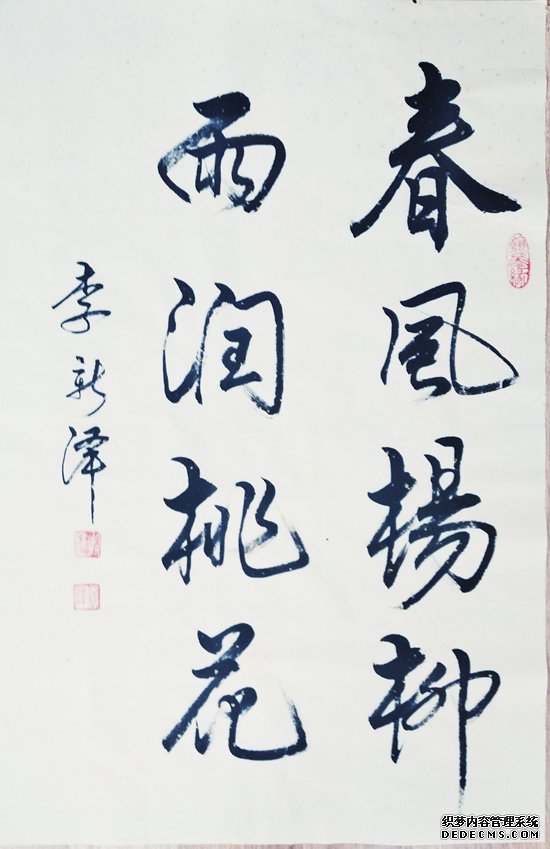 春風楊柳
雨润桃花
李新泽
织梦内容管理系统
DEDECMS.COM